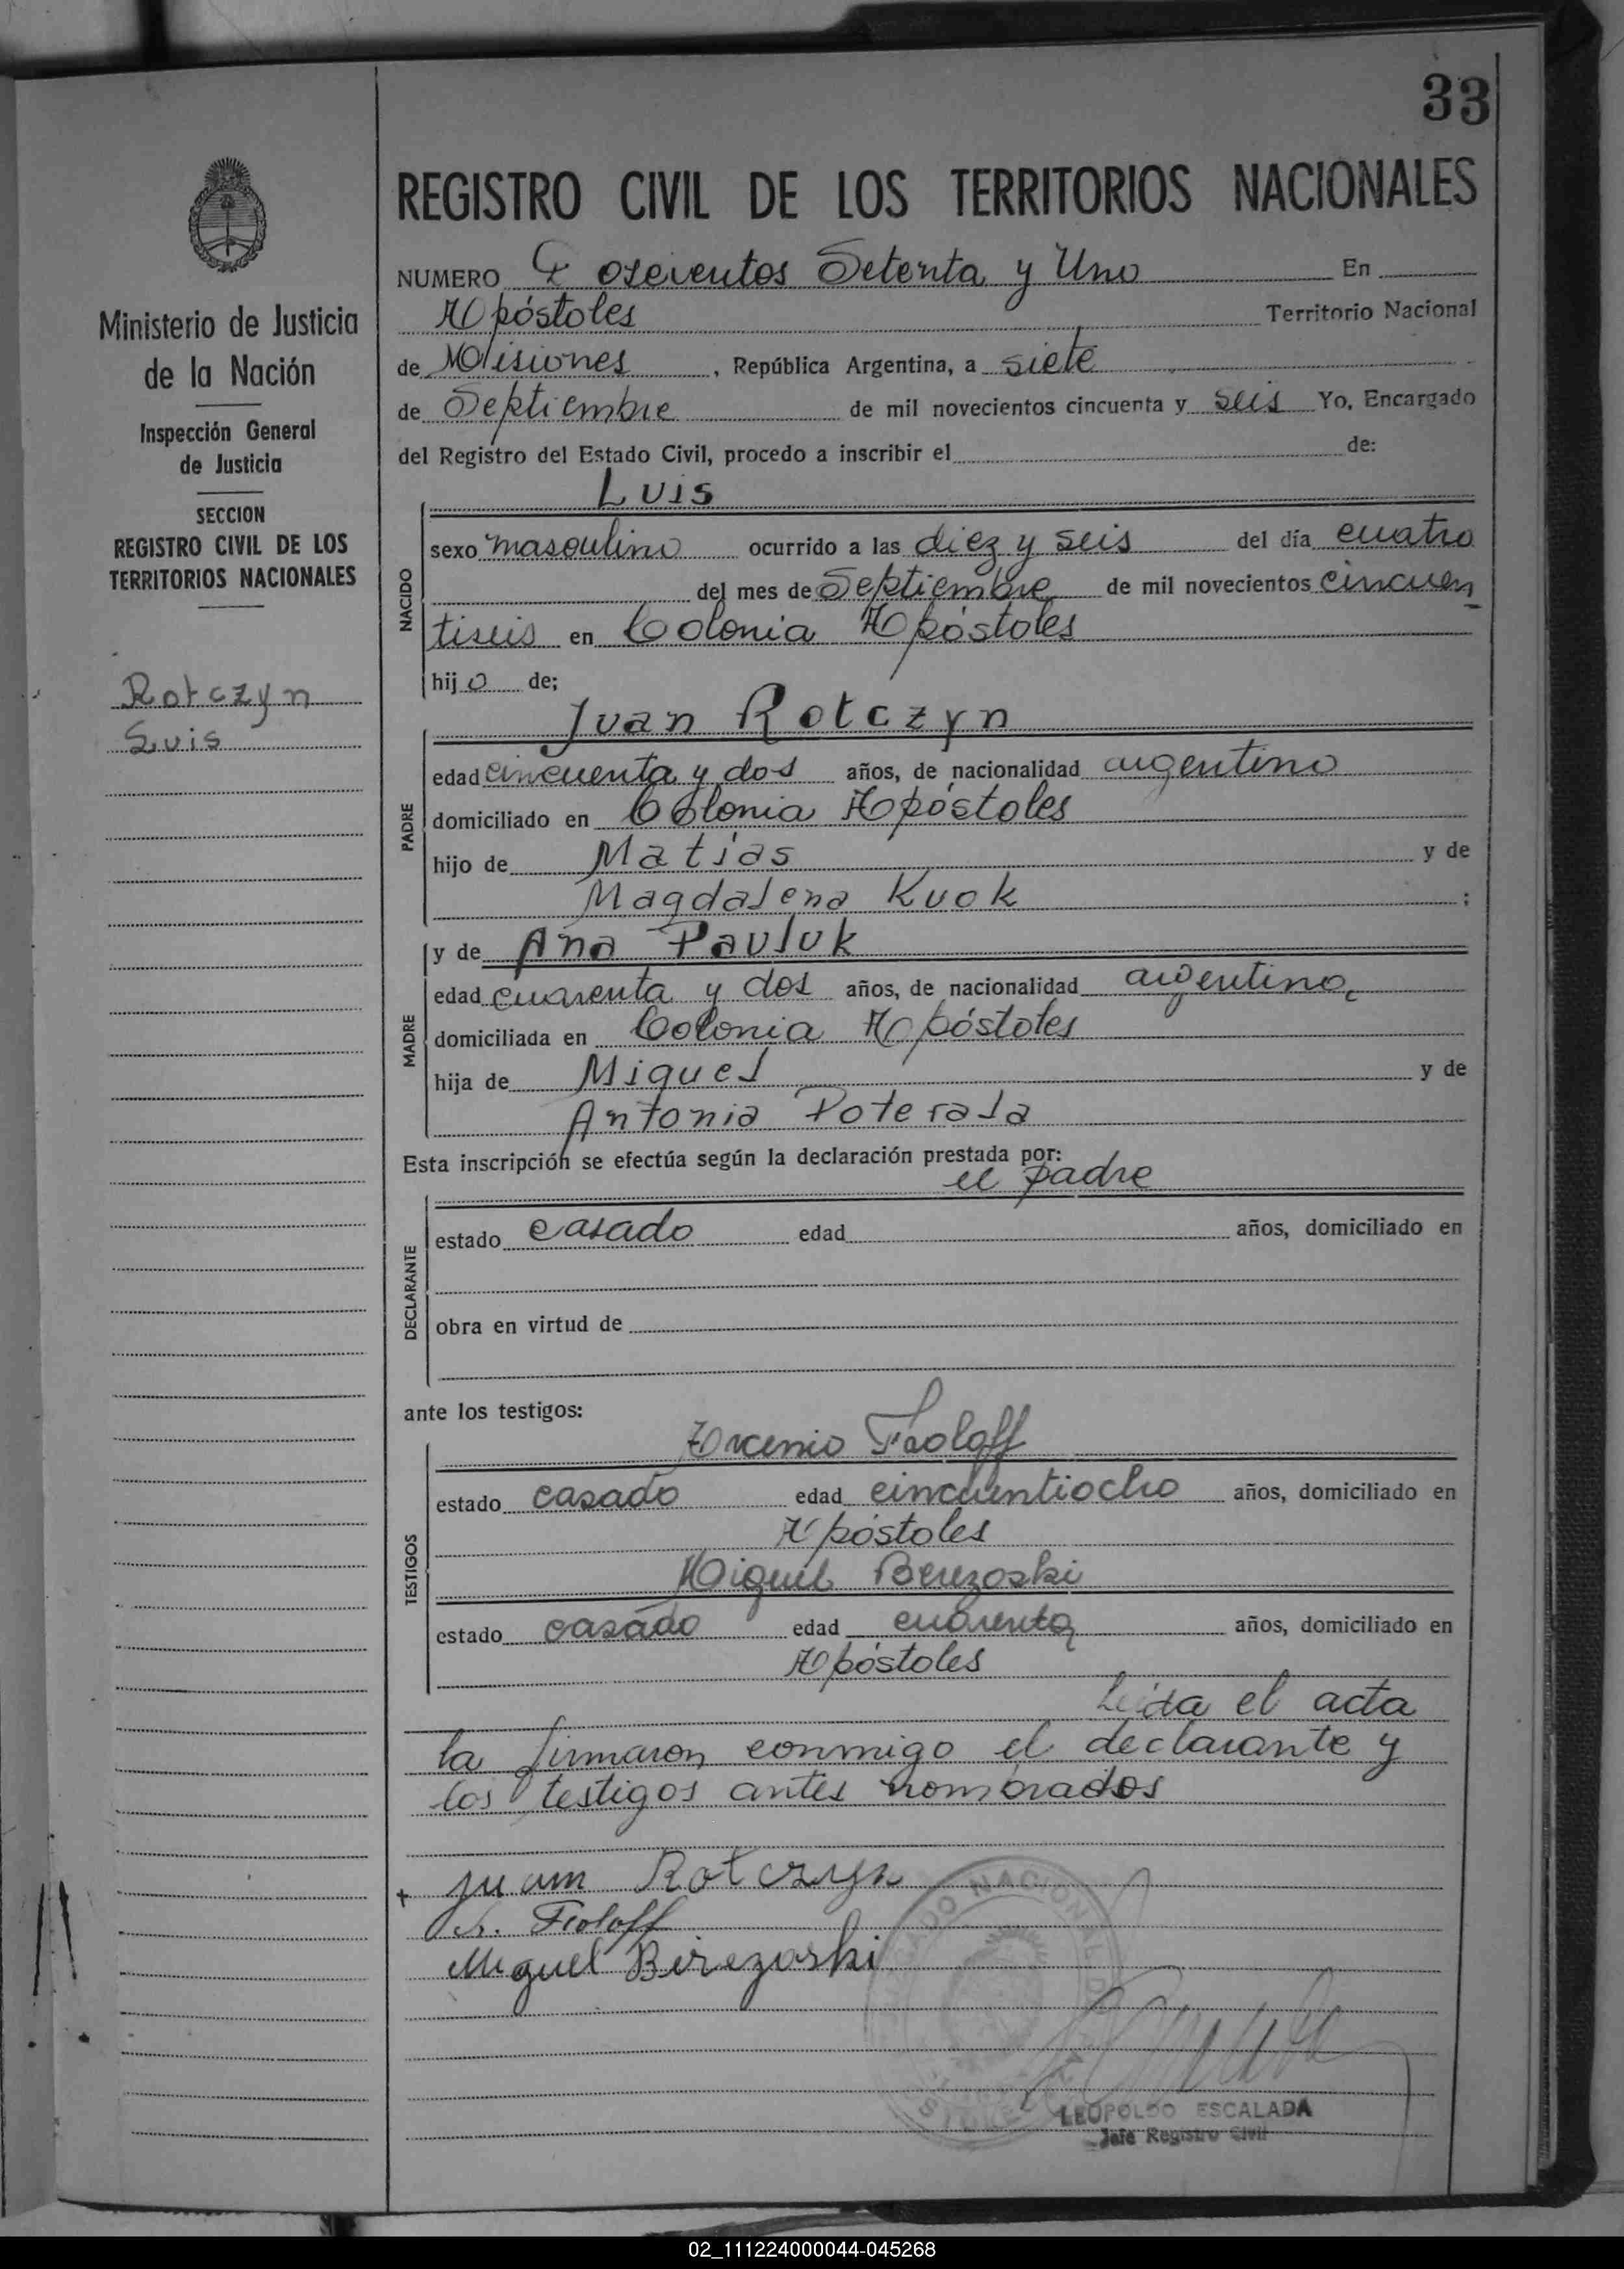 33
REGISTRO CIVIL DE LOS TERRITORIOS NACIONALES
NUMERO Doscientos Setenta y Uno En
Apóstoles Territorio Nacional
de Misiones, República Argentina, a siete
de Septiembre de mil novecientos cincuenta y seis Yo, Encargado
del Registro del Estado Civil, procedo a inscribir el de:
Ministerio de Justicia
de la Nación
Inspección General
de Justicia
SECCION
REGISTRO CIVIL DE LOS
TERRITORIOS NACIONALES
Rotczyn
Luis
NACIDO
Luis
sexo masculino ocurrido a las diez y seis del día cuatro
del mes de Septiembre de mil novecientos cincuen
tiseis en Colonia Apóstoles
hijo de;
PADRE
Juan Rotczyn
edad cincuenta y dos años, de nacionalidad argentino
domiciliado en Colonia Apóstoles
hijo de Matias y de
Magdalena Kuok ;
MADRE
y de Ana Pauluk
edad cuarenta y dos años, de nacionalidad argentina
domiciliada en Colonia Apóstoles
hija de Miguel y de
Antonia Poterala
Esta inscripción se efectúa según la declaración prestada por:
el padre
DECLARANTE
estado casado edad años, domiciliado en
obra en virtud de
ante los testigos:
TESTIGOS
Froloff
estado casado edad cincuentiocho años, domiciliado en
Apóstoles
Miguel Berezoski
estado casado edad cuarenta años, domiciliado en
Apóstoles
Leida el acta
la firmaron conmigo el declarante y
los testigos antes nombrados
+ Juam Rotczyn
Froloff
Miguel Berezoski
LEOPOLDO ESCALADA
Jefe Registro Civil
02_111224000044-045268